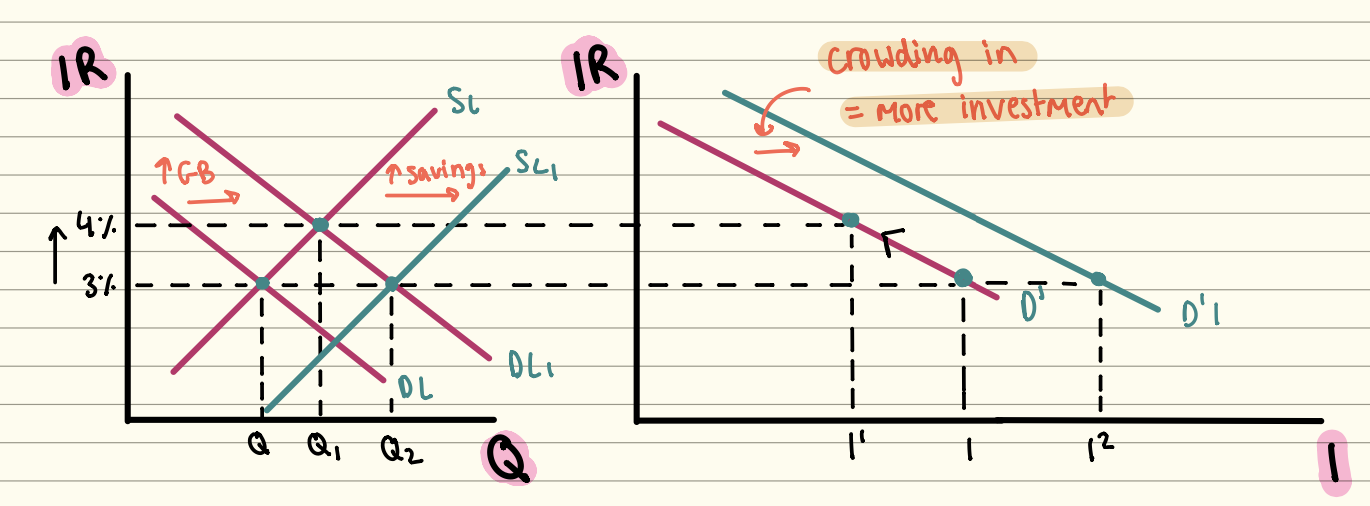 IR
SL
SL1
↑GB
↑ savings
4%
3%
DL
DL1
Q
Q1
Q2
Q
IR
crowding in
= more investment
D'
D'1
I'
I
I²
I